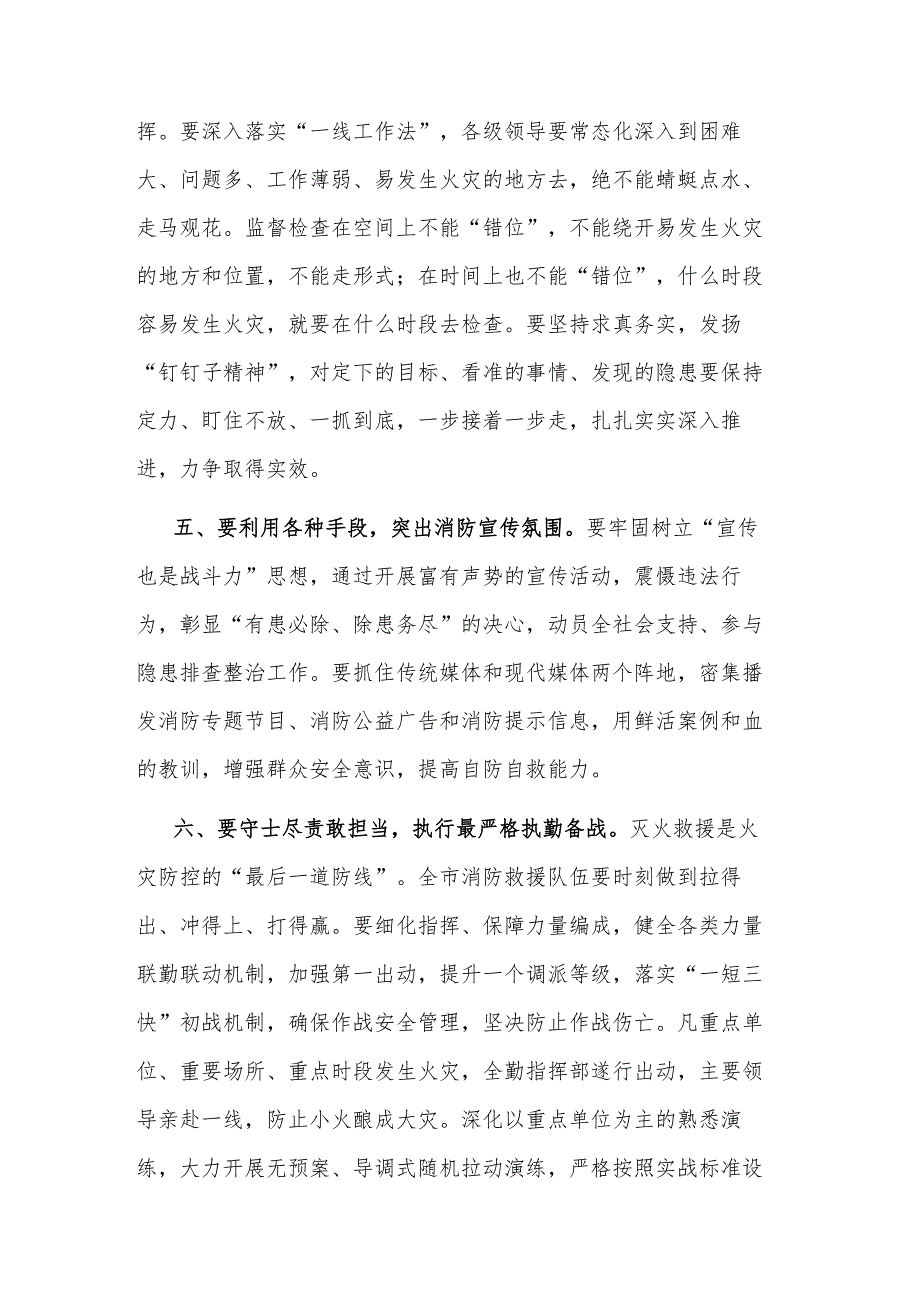 挥。要深入落实“一线工作法”，各级领导要常态化深入到困难
大、问题多、工作薄弱、易发生火灾的地方去，绝不能蜻蜓点水、
走马观花。监督检查在空间上不能“错位”，不能绕开易发生火灾
的地方和位置，不能走形式；在时间上也不能“错位”，什么时段
容易发生火灾，就要在什么时段去检查。要坚持求真务实，发扬
“钉钉子精神”，对定下的目标、看准的事情、发现的隐患要保持
定力、盯住不放、一抓到底，一步接着一步走，扎扎实实深入推
进，力争取得实效。
五、要利用各种手段，突出消防宣传氛围。要牢固树立“宣传
也是战斗力”思想，通过开展富有声势的宣传活动，震慑违法行
为，彰显“有患必除、除患务尽”的决心，动员全社会支持、参与
隐患排查整治工作。要抓住传统媒体和现代媒体两个阵地，密集播
发消防专题节目、消防公益广告和消防提示信息，用鲜活案例和血
的教训，增强群众安全意识，提高自防自救能力。
六、要守士尽责敢担当，执行最严格执勤备战。灭火救援是火
灾防控的“最后一道防线”。全市消防救援队伍要时刻做到拉得
出、冲得上、打得赢。要细化指挥、保障力量编成，健全各类力量
联勤联动机制，加强第一出动，提升一个调派等级，落实“一短三
快”初战机制，确保作战安全管理，坚决防止作战伤亡。凡重点单
位、重要场所、重点时段发生火灾，全勤指挥部遂行出动，主要领
导亲赴一线，防止小火酿成大灾。深化以重点单位为主的熟悉演
练，大力开展无预案、导调式随机拉动演练，严格按照实战标准设